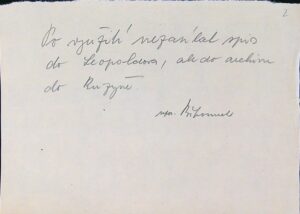 Po využití nezasílat spis
do Leopoldova, ale do archivu
do Ruzyně.